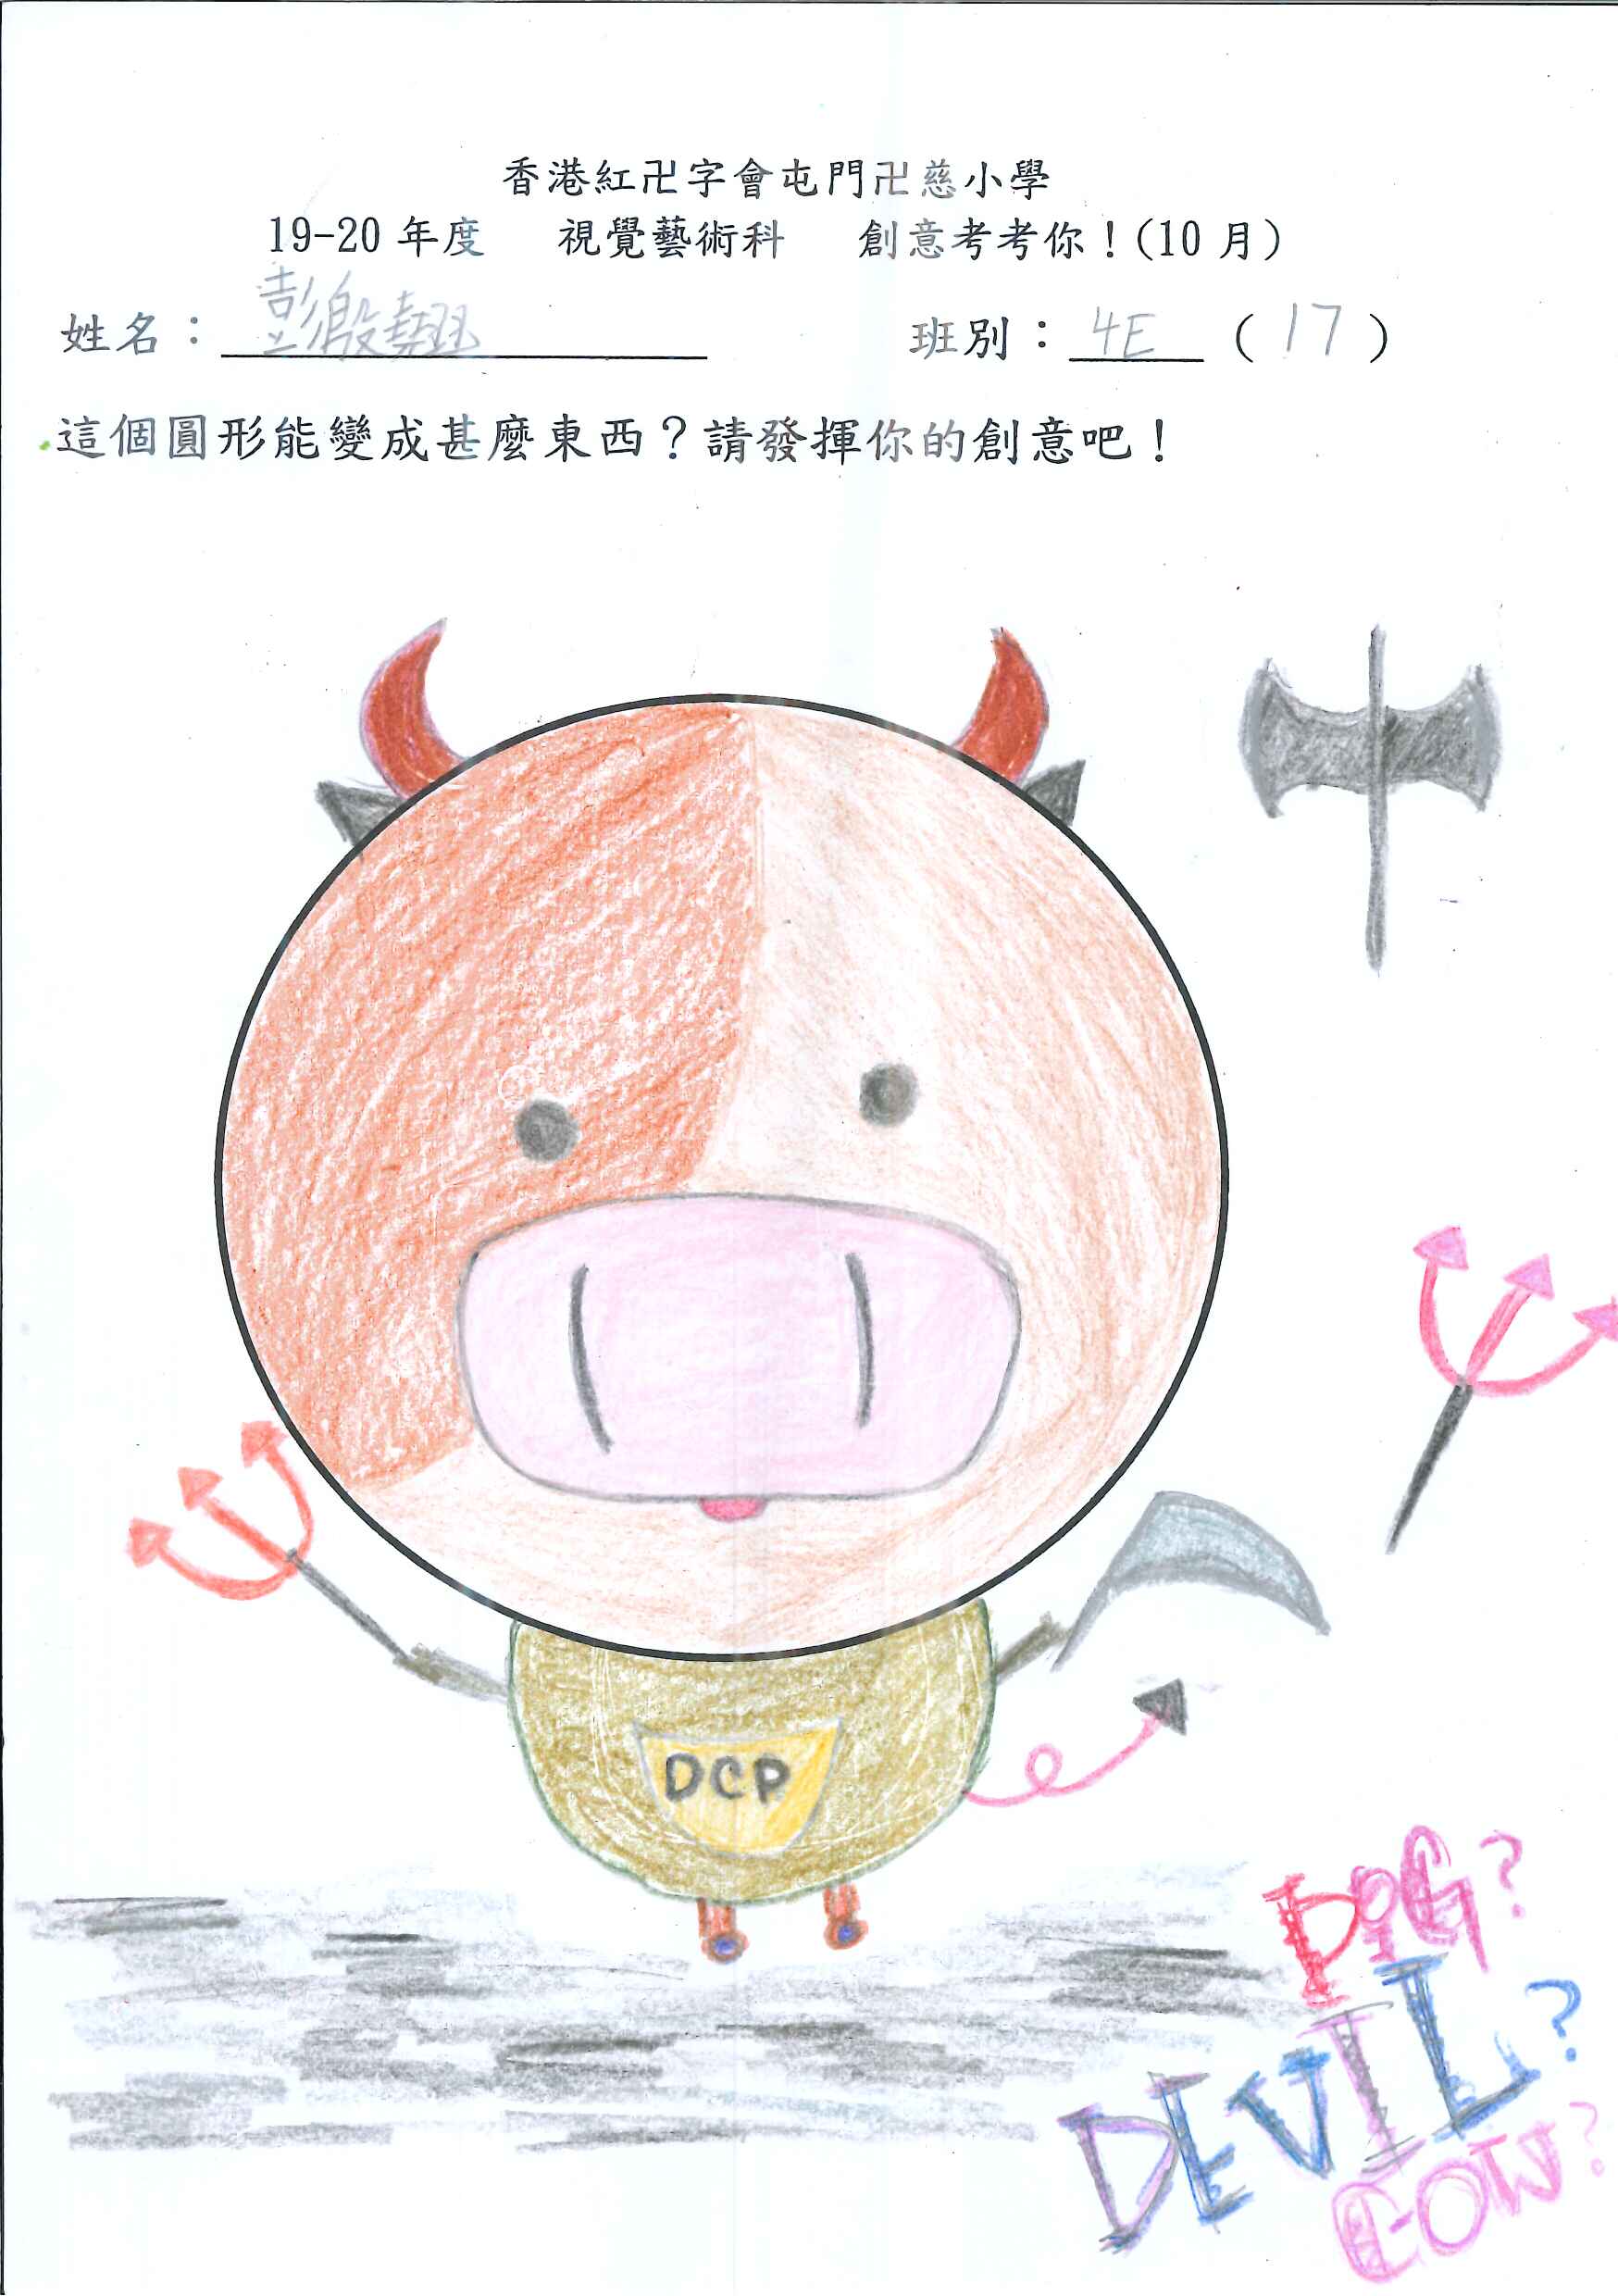 香港紅卍字會屯門卍慈小學
19-20 年度 視覺藝術科 創意考考你！(10 月)
姓名： 彭 班別： 4E ( 17 )
這個圓形能變成甚麼東西？請發揮你的創意吧！
DCP
PIG?
DEVIL?
COW?